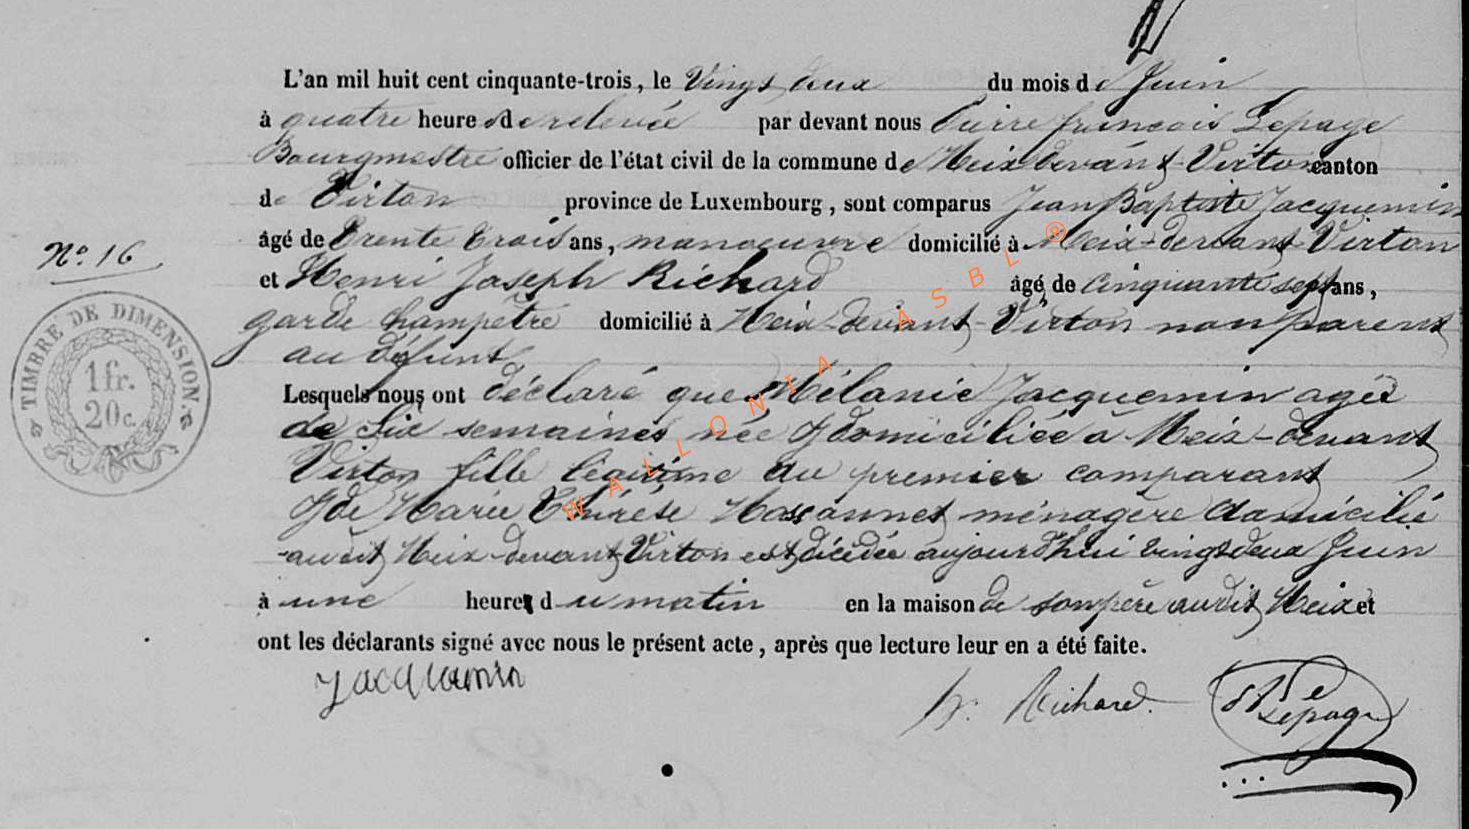 L'an mil huit cent cinquante-trois, le Vingt deux du mois de Juin
à quatre heures de relevée par devant nous Pierre françois Lepage
Bourgmestre officier de l'état civil de la commune de Meix-devant-Virton canton
de Virton province de Luxembourg, sont comparus Jean Baptiste Jacquemin
N° 16
âgé de trente trois ans, manoeuvre domicilié à Meix-devant-Virton
et Henri Joseph Richard âgé de cinquante sept ans,
garde champêtre domicilié à Meix-devant-Virton non parent
au défunt
Lesquels nous ont déclaré que Mélanie Jacquemin agée
de Six semaines née & domiciliée à Meix-devant
Virton fille légitime du premier comparant
& de Marie Thérèse ménagère domicilié
audit Meix-devant-Virton est décédée aujourd'hui vingt deux Juin
à une heure du matin en la maison de son père audit Meix et
ont les déclarants signé avec nous le présent acte, après que lecture leur en a été faite.
Jacquemin
h. Richard.
Lepage
TIMBRE DE DIMENSION
1 fr.
20 c.
WALLONIA ASBL ®